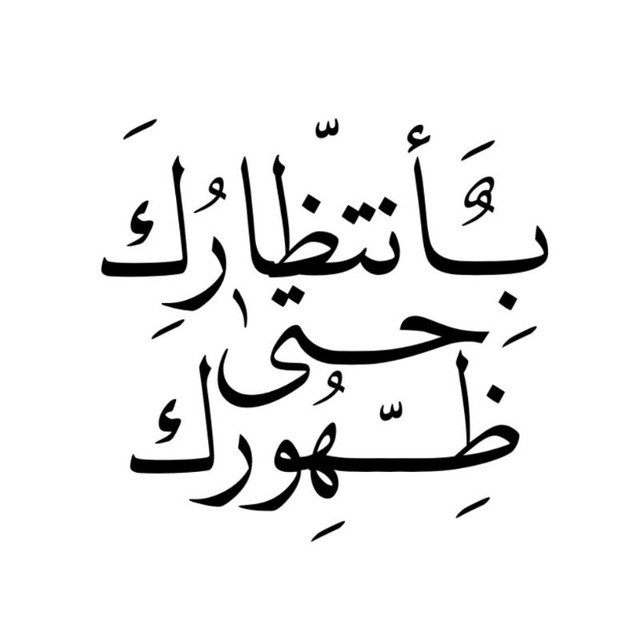 بأنتظارك
حتى
ظهورك